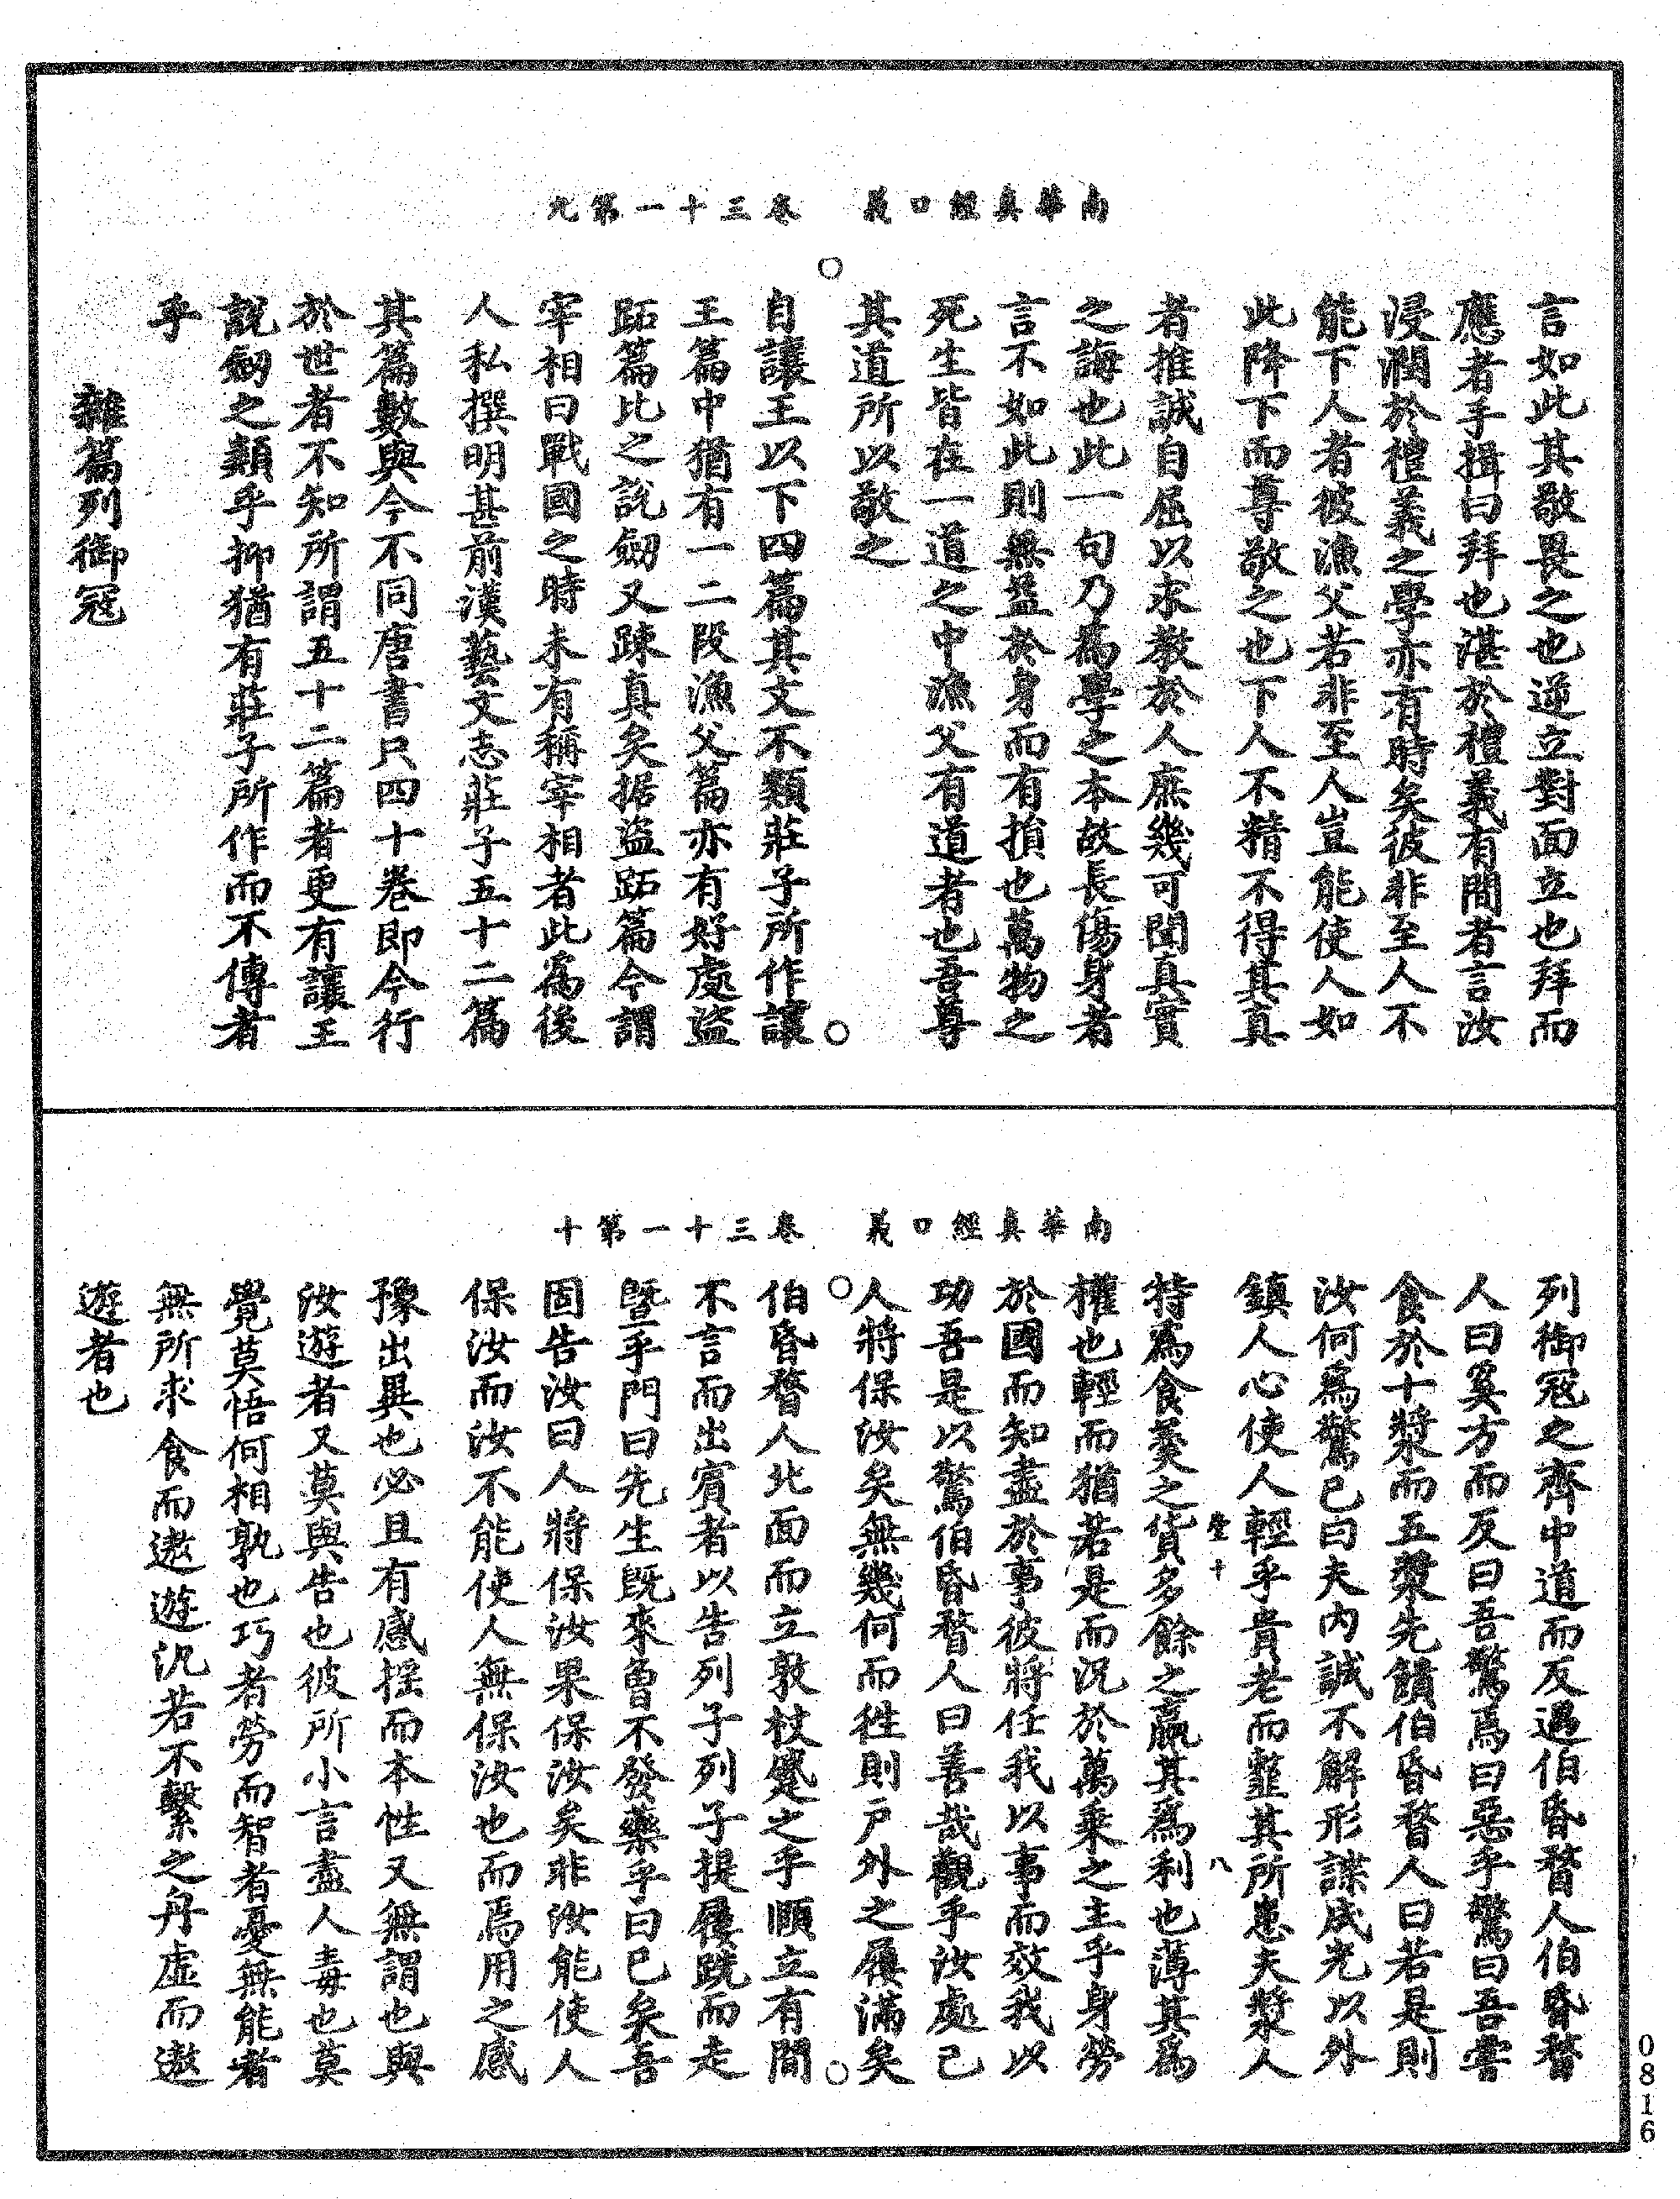 南華真經口義　卷三十一第九
言如此其敬畏之也逆立對面立也拜而
應者手揖曰拜也湛於禮義有間者言汝
浸潤於禮義之學亦有時矣彼非至人不
能下人者彼漁父若非至人豈能使人如
此降下而尊敬之也下人不精不得其真
者推誠自屈以求教於人庶幾可聞真實
之誨也此一句乃為學之本故長傷身者
言不如此則無益於身而有損也萬物之
死生皆在一道之中漁父有道者也吾尊
其道所以敬之
自讓王以下四篇其文不類莊子所作讓
王篇中猶有一二段漁父篇亦有好處盜
跖篇比之說劒又踈真矣据盜跖篇今謂
宰相曰戰國之時未有稱宰相者此為後
人私撰明甚前漢藝文志莊子五十二篇
其篇數與今不同唐書只四十卷即今行
於世者不知所謂五十二篇者更有讓王
說劒之類乎抑猶有莊子所作而不傳者
乎
雜篇列御冦
南華真經口義　卷三十一第十
列御冦之齊中道而反遇伯昏瞀人伯昏瞀
人曰奚方而反曰吾驚焉曰惡乎驚曰吾嘗
食於十漿而五漿先饋伯昏瞀人曰若是則
汝何為驚已曰夫內誠不解形諜成光以外
鎮人心使人輕乎貴老而䪠其所患夫漿人
特為食羹之貨多餘之贏其為利也薄其為
權也輕而猶若是而況於萬乘之主乎身勞
於國而知盡於事彼將任我以事而效我以
功吾是以驚伯昏瞀人曰善哉觀乎汝處己
人將保汝矣無幾何而往則戶外之屨滿矣
伯昏瞀人北面而立敦杖蹙之乎頤立有間
不言而出賓者以告列子列子提屨跣而走
暨乎門曰先生既來曾不發藥乎曰已矣吾
固告汝曰人將保汝果保汝矣非汝能使人
保汝而汝不能使人無保汝也而焉用之感
豫出異也必且有感搖而本性又無謂也與
汝遊者又莫與告也彼所小言盡人毒也莫
覺莫悟何相孰也巧者勞而智者憂無能者
無所求食而遨遊汎若不繫之舟虛而遨
遊者也
十 八
0816